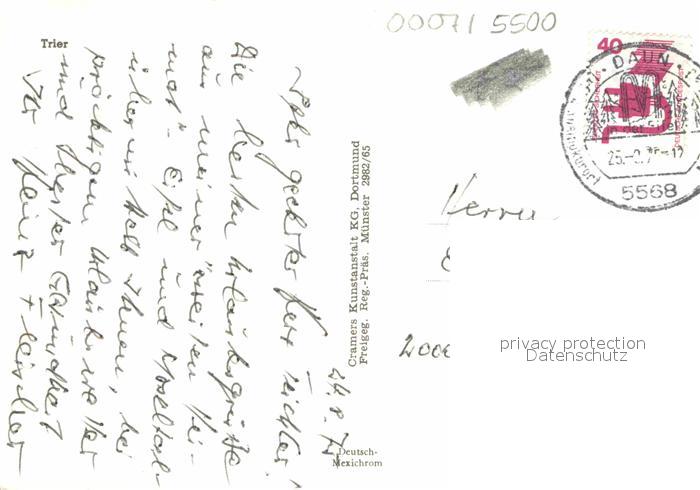 Trier
24.8.75
Sehr geehrter Herr Richter!
Die besten Urlaubsgrüße
aus meiner zweiten Hei-
mat - Eifel und Mosel
übermittelt Ihnen, bei
prächtigem Urlaubswetter
und bester Gesundheit
Ihr Heinz Fleischer
Cramers Kunstanstalt KG, Dortmund
Freigeg. Reg.-Präs. Münster 2982/65
Deutsch-
Mexichrom
00071 5500
40
DAUN
5568
Herrn
2000
privacy protection
Datenschutz